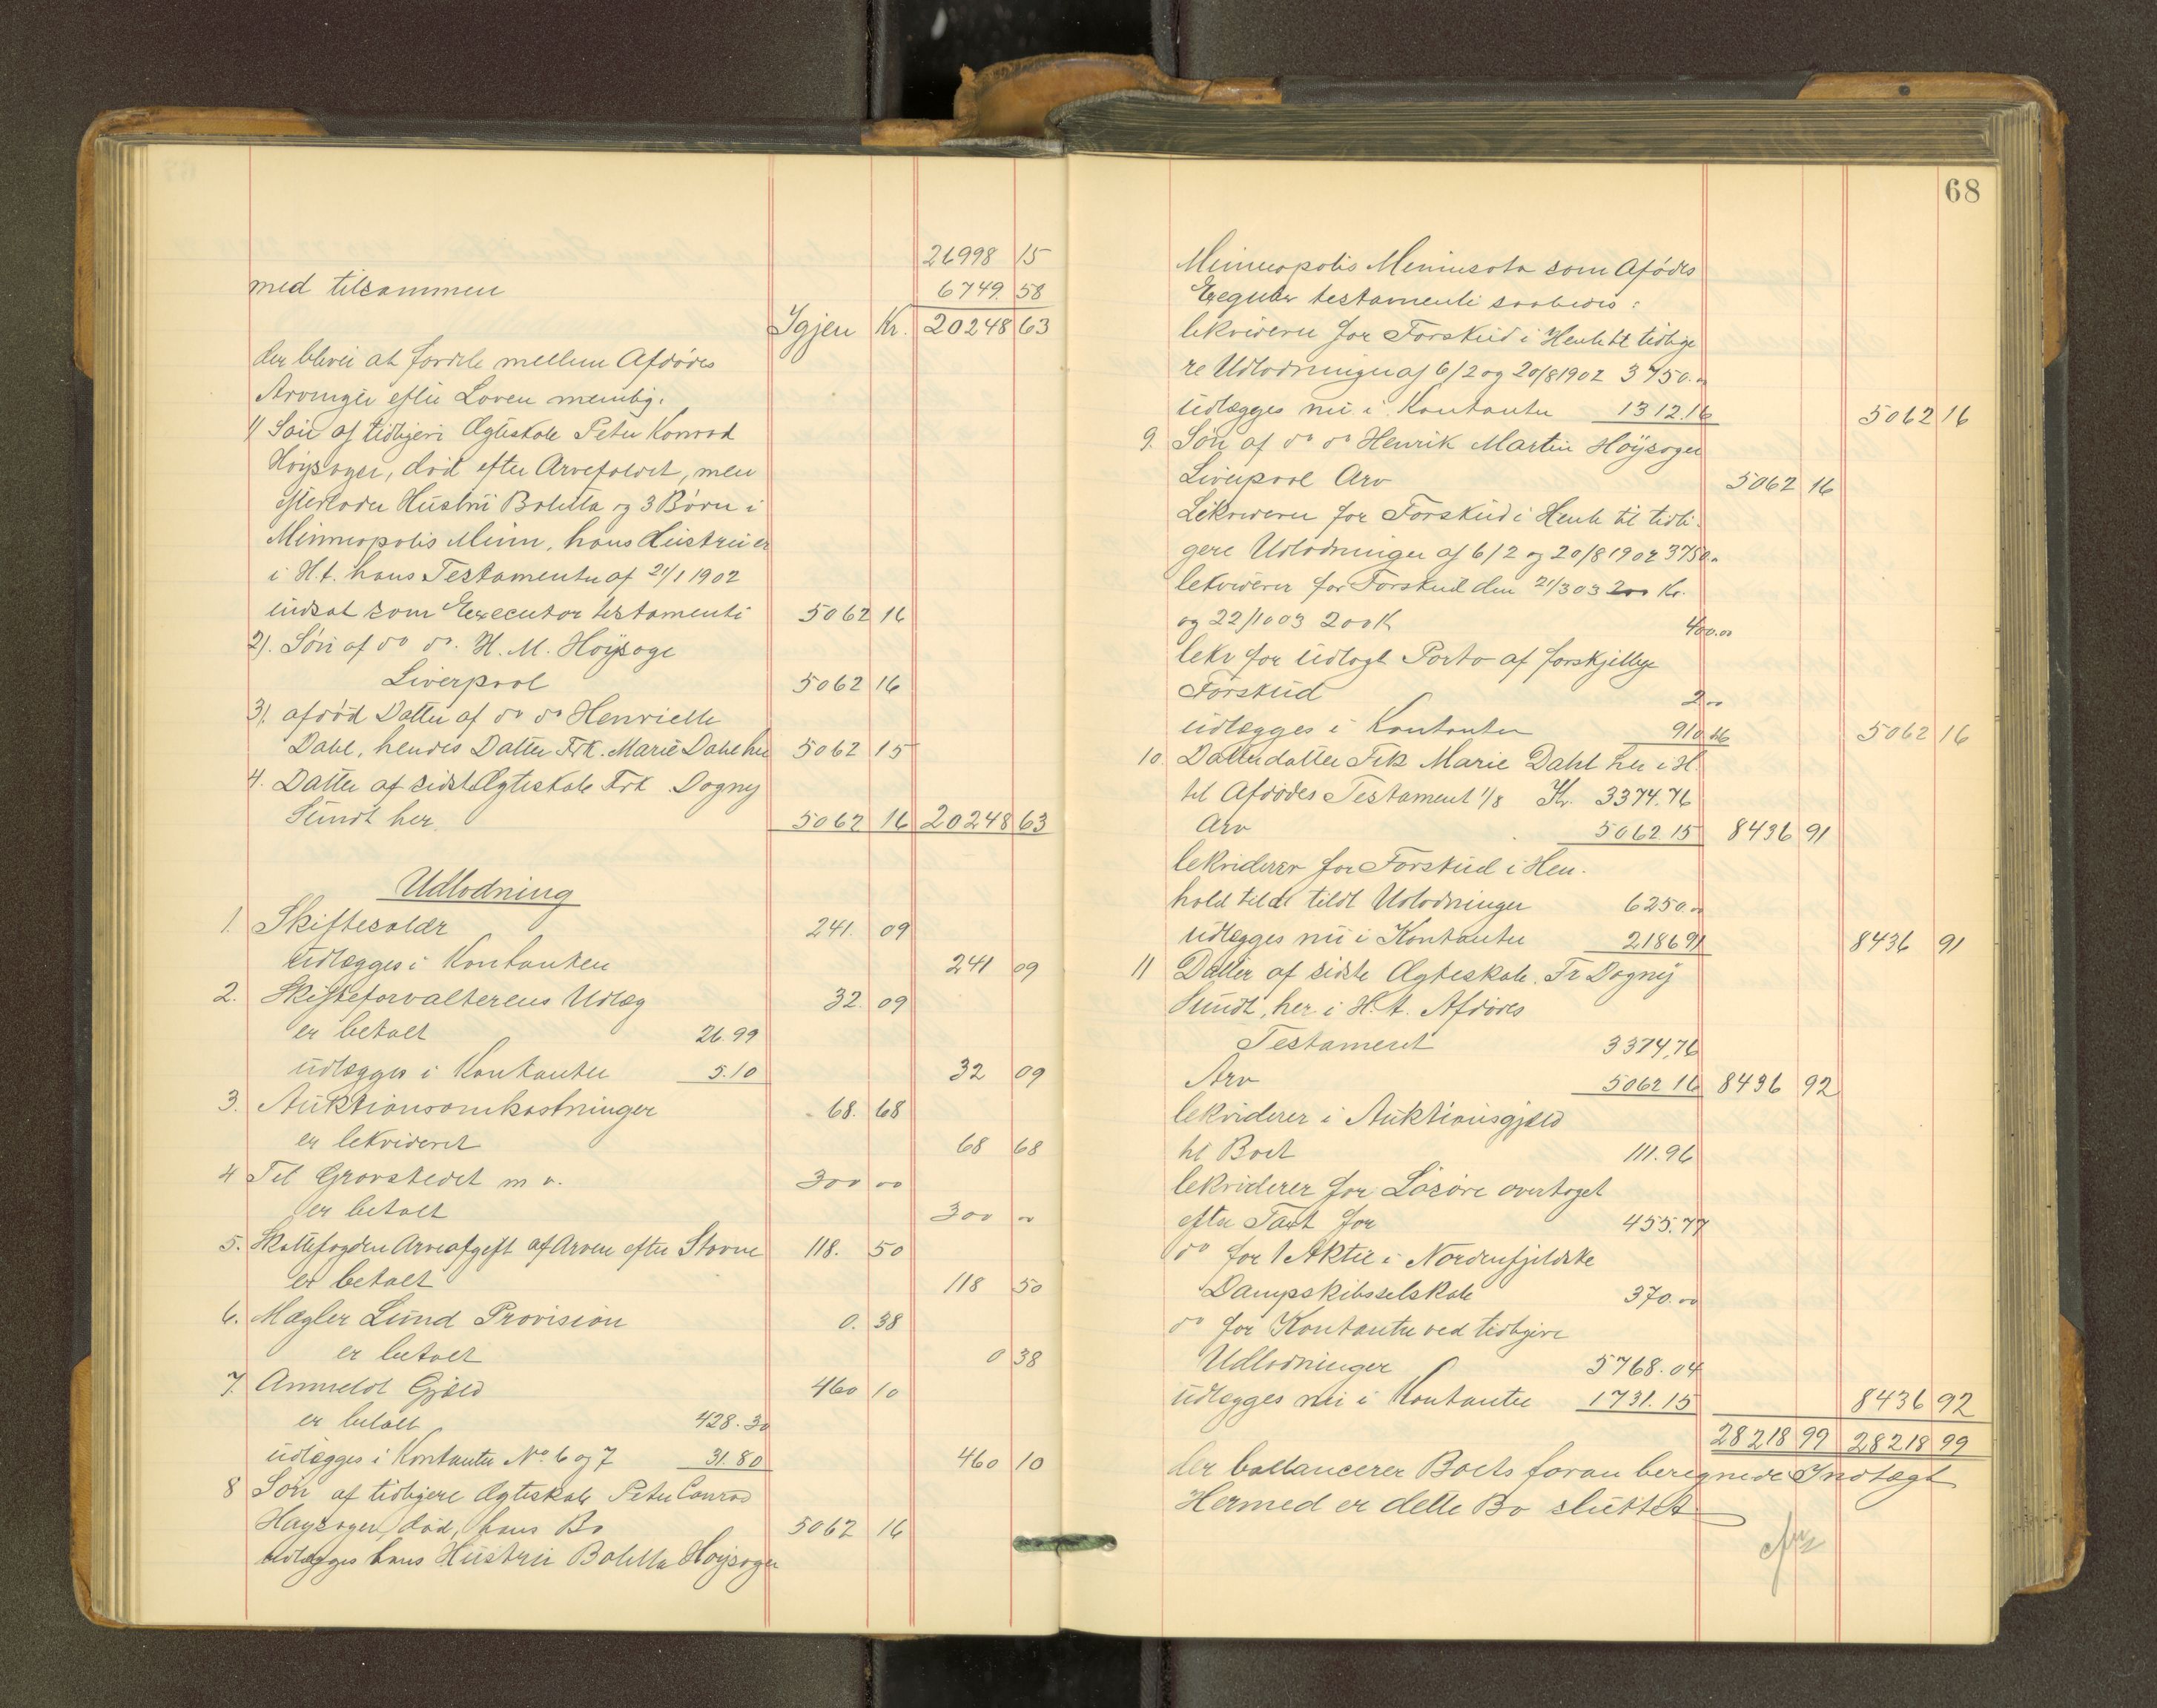 26998 15
med tilsammen 6749. 58
Igjen Kr. 20248 63
der blevei at fordele mellem Afdødes
Arvinger efter Loven nemlig:
1/ Søn af tidligere Ægteskab Peter Konrad
Høysager, død efter Arvefaldet, men
efterlader Hustru Boletta og 3 Børn i
Minneapolis Minn, hans Hustru er
i H. t. hans Testamente af 21/1 1902
indsat som Executor testamenti 5062 16
2/. Søn af do do. H. M. Høysage
Liverpool 5062 16
3/. afdød Datter af do do Henriette
Dahl, hendes Datter Frk. Marie Dahl her 5062 15
4. Datter af sidste Ægteskab Frk Dagny
Sundt her 5062 16 20248 63
Udlodning
1. Skiftesalær 241. 09
udlægges i Kontanten 241 09
2. Skifteforvalterens Udlæg 32. 09
er betalt 26.99
udlægges i Kontanter 5.10 32 09
3. Auktionsomkostninger 68. 68
er lekvideret 68 68
4 Til Gravstedet m v. 300 00
er betalt 300 00
5. Skattefogden Arveafgift af Arven efter Stavne 118. 50
er betalt 118 50
6. Mægler Lund Provision 0. 38
er betalt 0 38
7. Anmeldt Gjæld 460 10
er betalt 428.30
udlægges i Kontanter No. 6 og 7 31.80 460 10
8 Søn af tidligere Ægteskab Peter Conrad
Høysager, død, hans Bo 5062 16
udlægges hans Hustru Boletta Høysager
68
Minneapolis Minnesota som Afdødes
Exequtor testamenti saaledes:
lekviderer for Forskud i Henh. til tidlige
re Udlodninger af 6/2 og 20/8 1902 3750.00
udlægges nu i Kontanter 1312.16 5062 16
9. Søn af do do Henrik Martin Høysager
Liverpool Arv 5062 16
Lekviderer for Forskud i Henh. til tidli-
gere Udlodninger af 6/2 og 20/8 1902 3750.00
lekviderer for Forskud den 21/3 03 200 Kr.
og 22/10 03 200 K 400.00
lekv for udlagt Porto af forskjellige
Forskud 2.00
udlægges i Kontanter 910.16 5062 16
10. Datterdatter Frk Marie Dahl her i H.
til Afdødes Testament 1/8 Kr. 3374.76
Arv 5062.15 8436 91
lekviderer for Forskud i Hen-
hold til de tidl Udlodninger 6250.00
udlægges nu i Kontanter 2186 91 8436 91
11 Datter af sidste Ægteskab. Fr Dagny
Sundt, her i H. t. Afdødes
Testament 3374,76
Arv 5062 16 8436 92
lekviderer i Auktionsgjæld
til Boet 111.96
lekviderer for Løsøre overtaget
efter Taxt for 455.77
do for 1 Aktie i Nordenfjeldske
Dampskibsselskab 370.00
do for Kontanter ved tidligere
Udlodninger 5768.04
udlægges nu i Kontanter 1731.15 8436 92
28218 99 28218 99
der ballancerer Boets foran beregnede Indtægt
Hermed er dette Bo sluttet